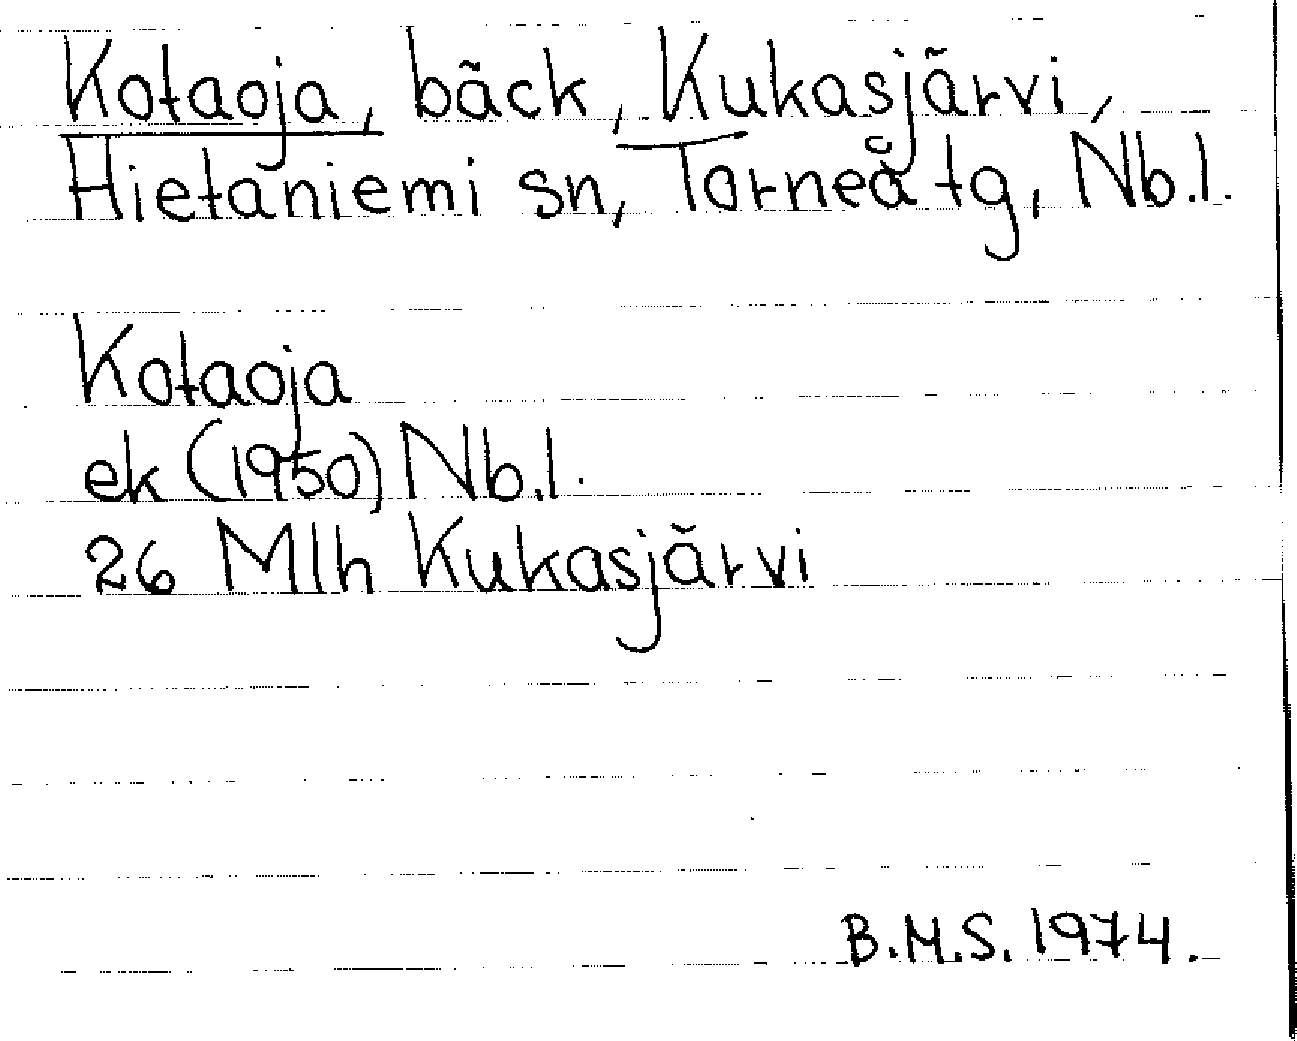 Kotaoja, bäck, Kukasjärvi,
Hietaniemi sn, Torneå tg, Nb.l.
Kotaoja
ek (1950) Nb.l.
26 Mlh Kukasjärvi
B.M.S. 1974.